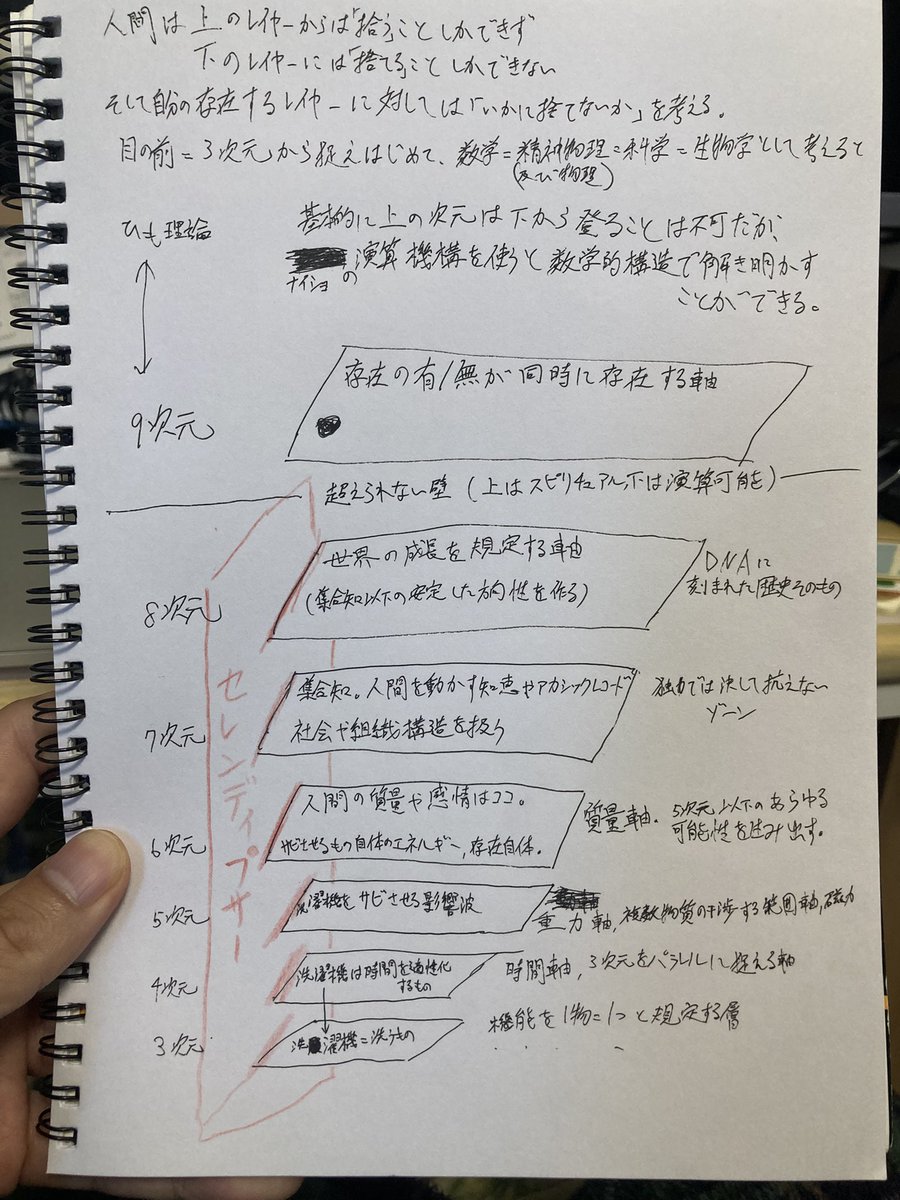 人間は上のレイヤーからは「拾う」ことしかできず
下のレイヤーには「捨てる」ことしかできない
そして自分の存在するレイヤーに対しては「いかに捨てないか」を考える。
目の前=3次元から捉えはじめて、数学=精神物理=科学=生物学として考えると
(及び物理)
基本的に上の次元は下から登ることは不可だが、
の演算機構を使うと数学的構造で解き明かす
ナイショ
ことができる。
ひも理論
9次元
存在の有/無が同時に存在する軸
超えられない壁(上はスピリチュアル、下は演算可能を)
8次元
世界の成長を規定する軸
(集合知以下の安定した方向性を作る)
DNAに
刻まれた歴史そのもの
7次元
集合知。人間を動かす知恵やアカシックレコード
社会や組織構造を扱う
独力では決して抗えない
ゾーン
6次元
人間の質量や感情はココ。
サビさせるもの自体のエネルギー,存在自体。
質量軸.
5次元以下のあらゆる
可能性を生み出す。
5次元
洗濯機をサビさせる影響波
重力軸,複数物質の干渉する範囲軸,磁力
4次元
洗濯機は時間を適性化
するもの
時間軸,3次元をパラレルに捉える軸
3次元
洗濯機=洗うもの
機能を1物=1つと規定する層
セレンディプサー